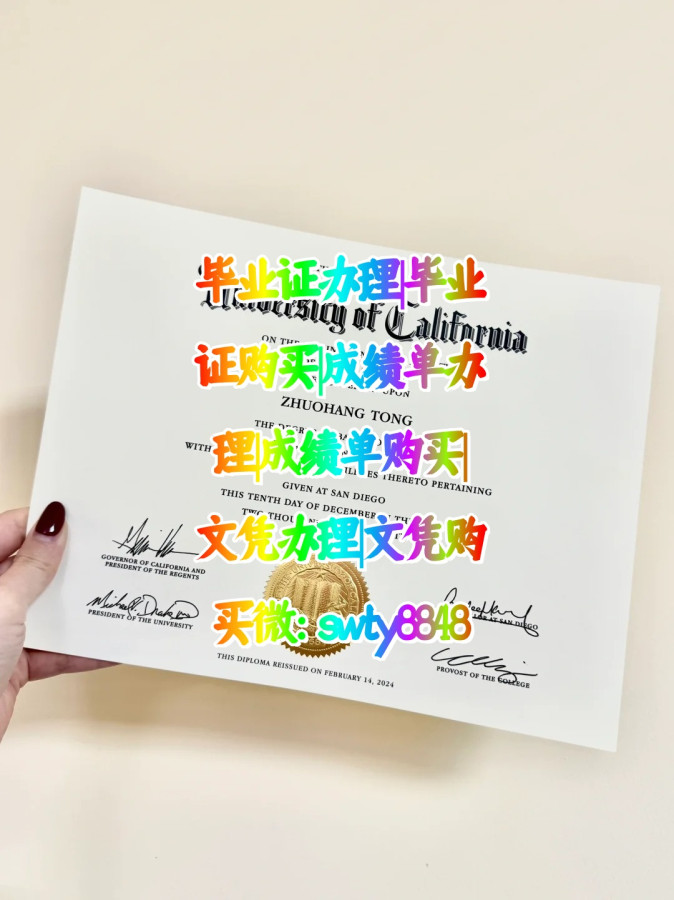 毕业证办理|毕业
University of California
ON THE
证购买|成绩单办
UPON
ZHUOHANG TONG
THE DEGREE
WITH
理|成绩单购买|
THERETO PERTAINING
GIVEN AT SAN DIEGO
THIS TENTH DAY OF DECEMBER
文凭办理|文凭购
GOVERNOR OF CALIFORNIA AND
PRESIDENT OF THE REGENTS
买微: swty8848
PRESIDENT OF THE UNIVERSITY
AT SAN DIEGO
PROVOST OF THE COLLEGE
THIS DIPLOMA REISSUED ON FEBRUARY 14, 2024